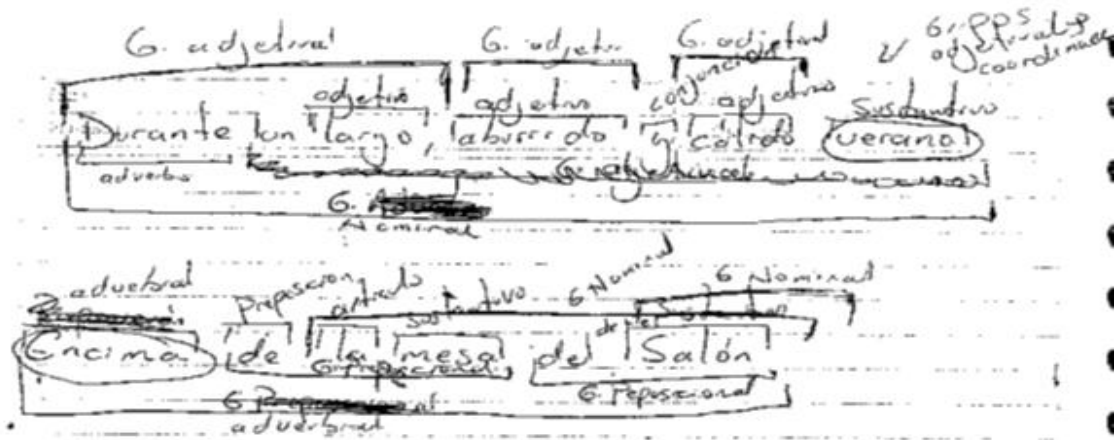 G. adjetival G. adjetiv G. adjetival
adjetivo adjetivo conjunción adjetivo Sustantivo
Durante un largo, aburrido y cálido verano
adverbio
G.
Nominal
adverbial Preposición artículo sustantivo G Nominal G Nominal
Encima de la mesa del Salón
G. preposicional G. Peposicional
G
adverbial